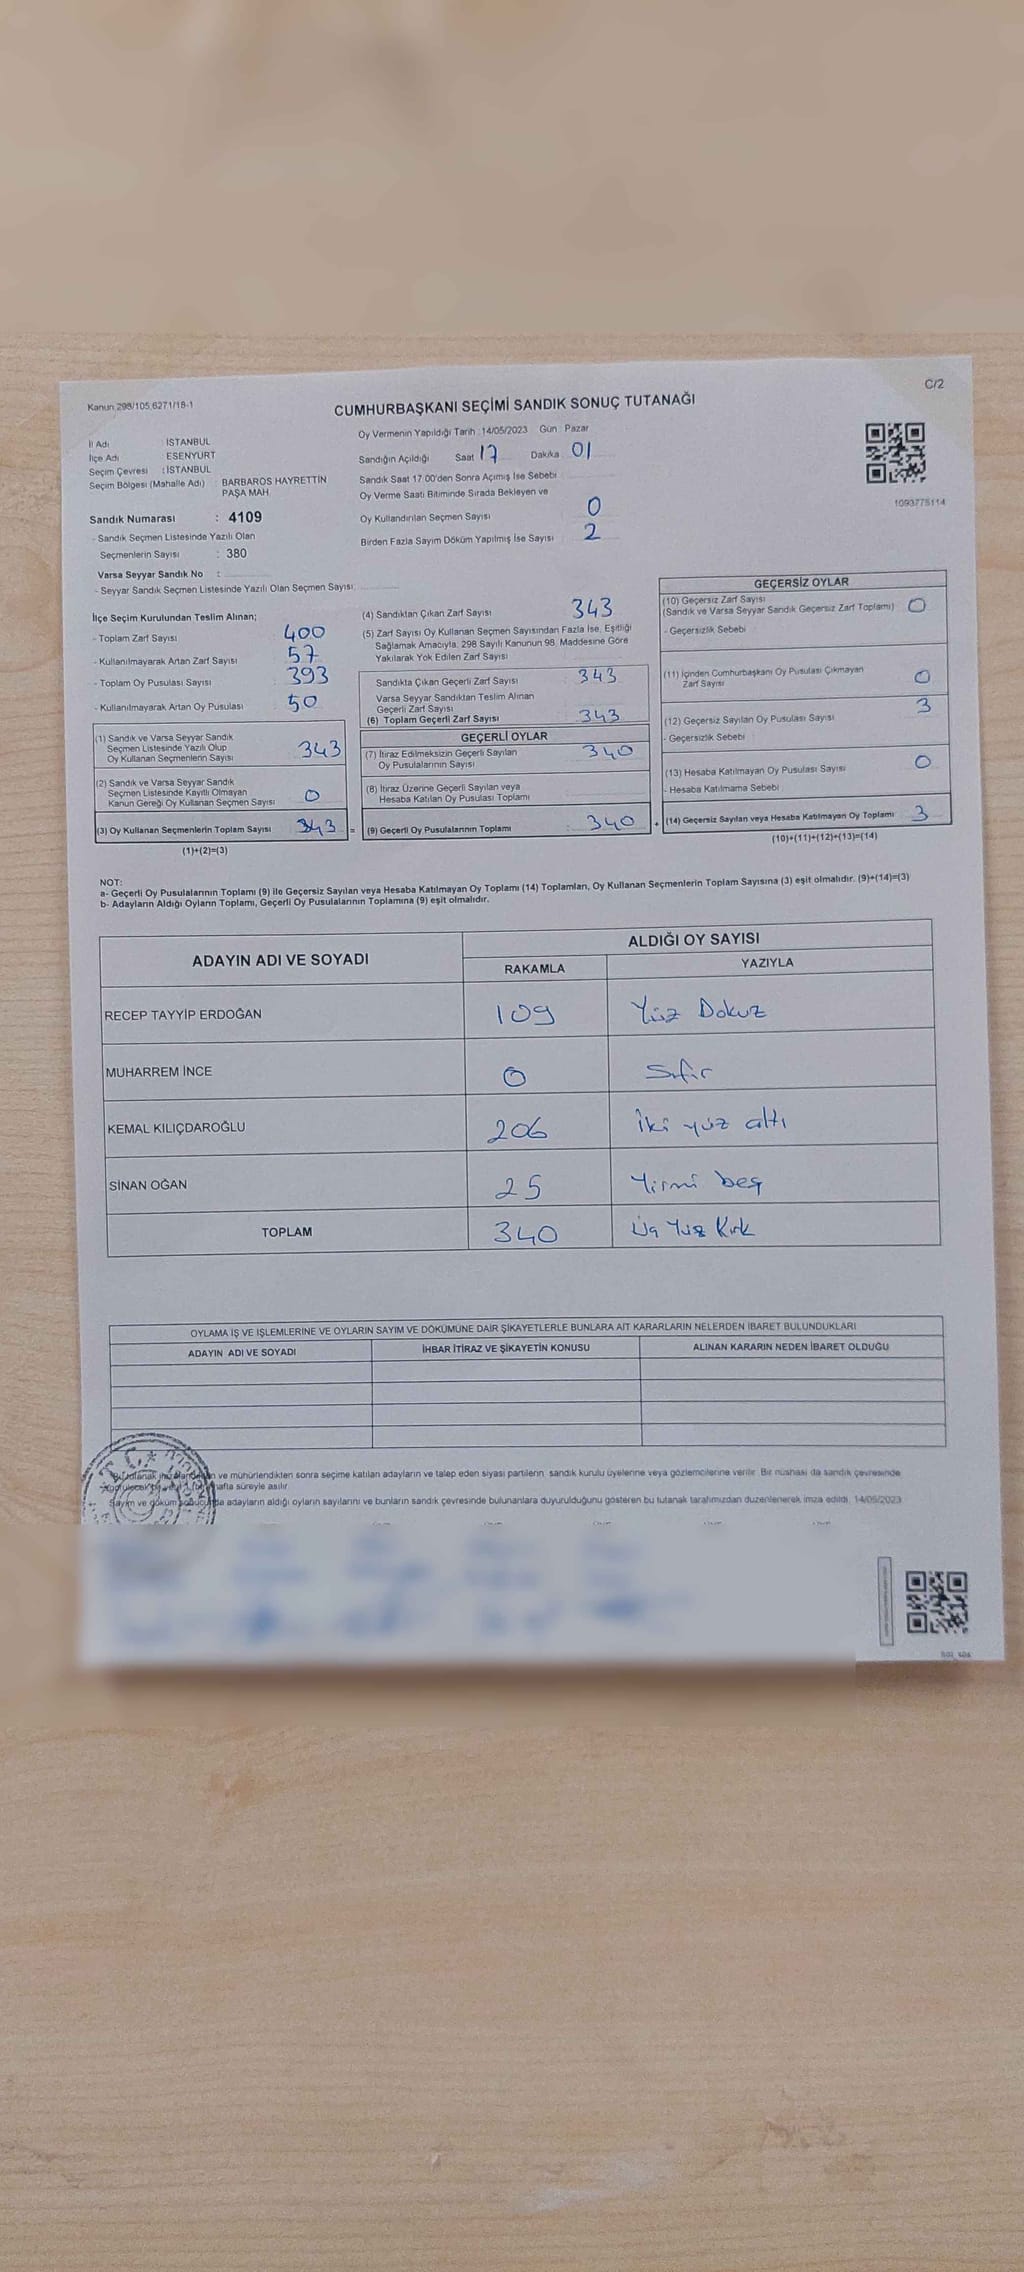 C/2
Kanun 298/105,6271/18-1
CUMHURBAŞKANI SEÇİMİ SANDIK SONUÇ TUTANAĞI
İl Adı : İSTANBUL
İlçe Adı : ESENYURT
Seçim Çevresi : İSTANBUL
Seçim Bölgesi (Mahalle Adı) : BARBAROS HAYRETTİN
PAŞA MAH
Sandık Numarası : 4109
- Sandık Seçmen Listesinde Yazılı Olan
Seçmenlerin Sayısı : 380
Varsa Seyyar Sandık No :
- Seyyar Sandık Seçmen Listesinde Yazılı Olan Seçmen Sayısı:
Oy Vermenin Yapıldığı Tarih :14/05/2023 Gün : Pazar
Sandığın Açıldığı Saat 17 Dakika 01
Sandık Saat 17:00'den Sonra Açımış İse Sebebi
Oy Verme Saati Bitiminde Sırada Bekleyen ve
Oy Kullandırılan Seçmen Sayısı 0
Birden Fazla Sayım Döküm Yapılmış İse Sayısı 2
1093775114
İlçe Seçim Kurulundan Teslim Alınan;
- Toplam Zarf Sayısı : 400
- Kullanılmayarak Artan Zarf Sayısı : 57
- Toplam Oy Pusulası Sayısı : 393
- Kullanılmayarak Artan Oy Pusulası : 50
(1) Sandık ve Varsa Seyyar Sandık
Seçmen Listesinde Yazılı Olup
Oy Kullanan Seçmenlerin Sayısı : 343
(2) Sandık ve Varsa Seyyar Sandık
Seçmen Listesinde Kayıtlı Olmayan
Kanun Gereği Oy Kullanan Seçmen Sayısı : 0
(3) Oy Kullanan Seçmenlerin Toplam Sayısı : 343 =
(1)+(2)=(3)
(4) Sandıktan Çıkan Zarf Sayısı : 343
(5) Zarf Sayısı Oy Kullanan Seçmen Sayısından Fazla İse, Eşitliği
Sağlamak Amacıyla; 298 Sayılı Kanunun 98. Maddesine Göre
Yakılarak Yok Edilen Zarf Sayısı
Sandıkta Çıkan Geçerli Zarf Sayısı : 343
Varsa Seyyar Sandıktan Teslim Alınan
Geçerli Zarf Sayısı
(6) Toplam Geçerli Zarf Sayısı : 343
GEÇERLİ OYLAR
(7) İtiraz Edilmeksizin Geçerli Sayılan
Oy Pusulalarının Sayısı : 340
(8) İtiraz Üzerine Geçerli Sayılan veya
Hesaba Katılan Oy Pusulası Toplamı
(9) Geçerli Oy Pusulalarının Toplamı : 340 +
GEÇERSİZ OYLAR
(10) Geçersiz Zarf Sayısı
(Sandık ve Varsa Seyyar Sandık Geçersiz Zarf Toplamı) : 0
- Geçersizlik Sebebi
(11) İçinden Cumhurbaşkanı Oy Pusulası Çıkmayan
Zarf Sayısı : 0
(12) Geçersiz Sayılan Oy Pusulası Sayısı : 3
- Geçersizlik Sebebi
(13) Hesaba Katılmayan Oy Pusulası Sayısı : 0
- Hesaba Katılmama Sebebi
(14) Geçersiz Sayılan veya Hesaba Katılmayan Oy Toplamı : 3
(10)+(11)+(12)+(13)=(14)
NOT:
a- Geçerli Oy Pusulalarının Toplamı (9) ile Geçersiz Sayılan veya Hesaba Katılmayan Oy Toplamı (14) Toplamları, Oy Kullanan Seçmenlerin Toplam Sayısına (3) eşit olmalıdır. (9)+(14)=(3)
b- Adayların Aldığı Oyların Toplamı, Geçerli Oy Pusulalarının Toplamına (9) eşit olmalıdır.
ADAYIN ADI VE SOYADI
ALDIĞI OY SAYISI
RAKAMLA YAZIYLA
RECEP TAYYİP ERDOĞAN 109 Yüz Dokuz
MUHARREM İNCE 0 Sıfır
KEMAL KILIÇDAROĞLU 206 İki yüz altı
SİNAN OĞAN 25 Yirmi beş
TOPLAM 340 Üç Yüz Kırk
OYLAMA İŞ VE İŞLEMLERİNE VE OYLARIN SAYIM VE DÖKÜMÜNE DAİR ŞİKAYETLERLE BUNLARA AİT KARARLARIN NELERDEN İBARET BULUNDUKLARI
ADAYIN ADI VE SOYADI İHBAR İTİRAZ VE ŞİKAYETİN KONUSU ALINAN KARARIN NEDEN İBARET OLDUĞU
Bu tutanak ve mühürlendikten sonra seçime katılan adayların ve talep eden siyasi partilerin, sandık kurulu üyelerine veya gözlemcilerine verilir. Bir nüshası da sandık çevresinde
hafta süreyle asılır.
Sayım ve döküm adayların aldığı oyların sayılarını ve bunların sandık çevresinde bulunanlara duyurulduğunu gösteren bu tutanak tarafımızdan düzenlenerek imza edildi. 14/05/2023
T.C.